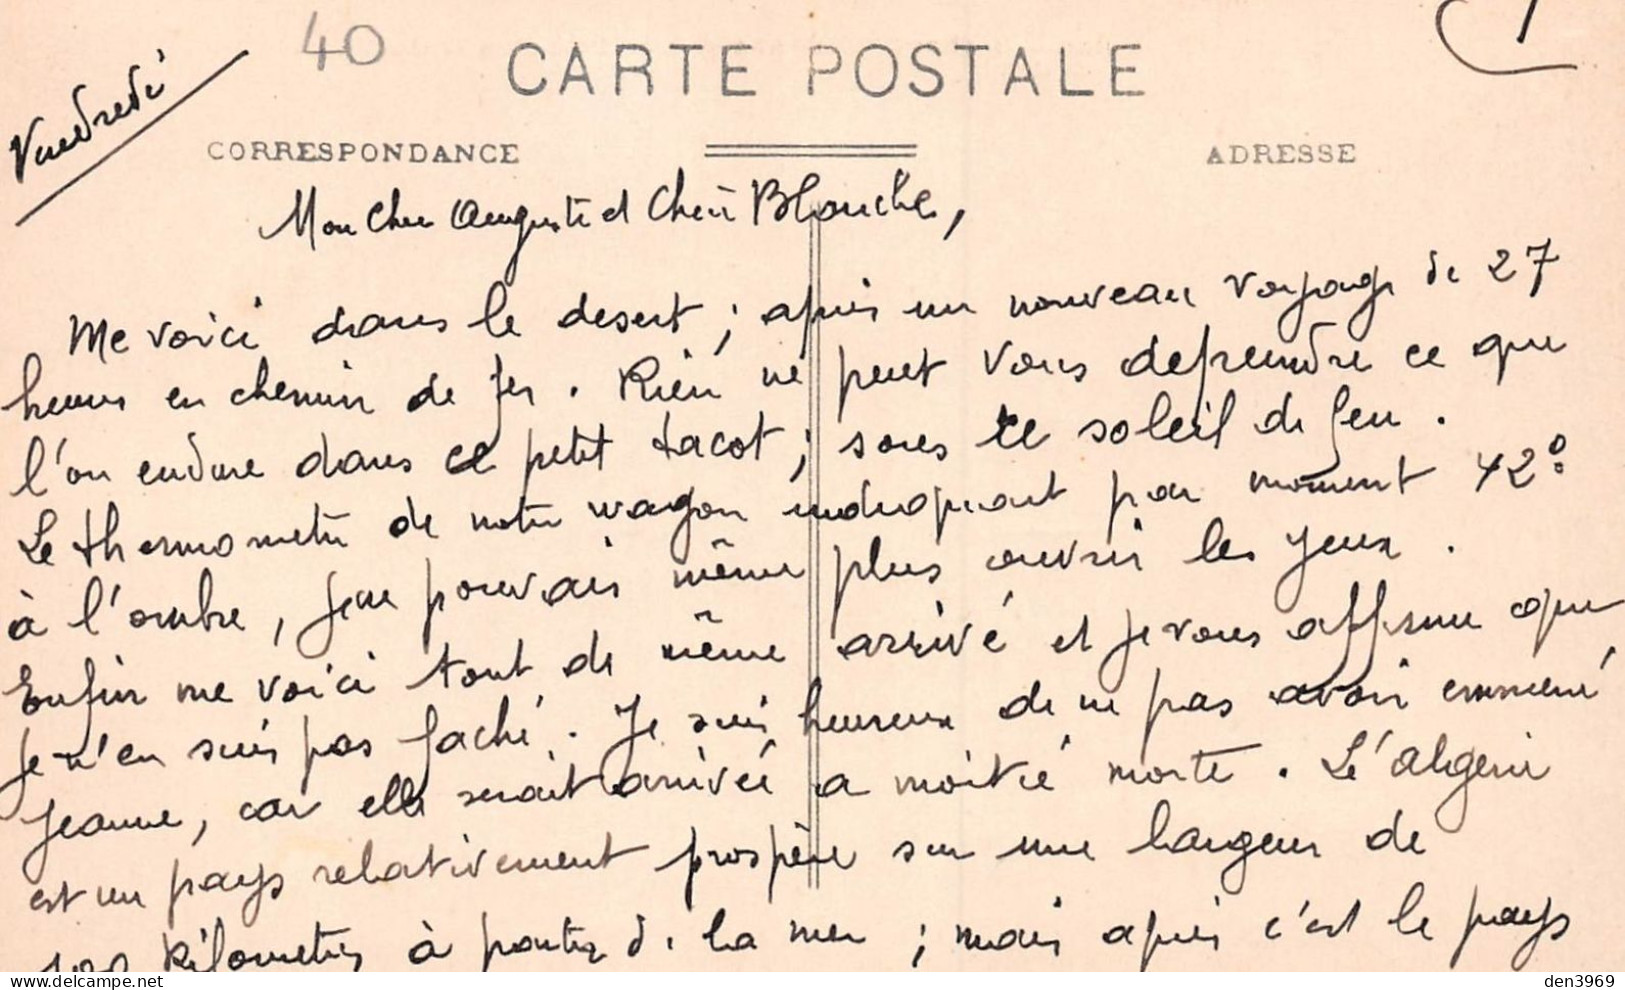 40
CARTE POSTALE
Vendredi
CORRESPONDANCE
ADRESSE
Mon cher Auguste et Chère Blanche,
Me voici dans le desert ; après un nouveau voyage de 27
heures en chemin de fer. Rien ne peut vous depeindre ce que
l'on endure dans ce petit tacot ; sous ce soleil de feu.
Le thermometre de notre wagon indiquait par moment 42°
à l'ombre, je ne pouvais même plus ouvrir les yeux.
Enfin me voici tout de même arrivé et je vous affirme que
je n'en suis pas faché. Je suis heureux de ne pas avoir emmené
Jeanne, car elle serait arrivée a moitié morte. L'Algerie
est un pays relativement prospère sur une largeur de
100 kilometres à partir de la mer ; mais après c'est le pays
den3969